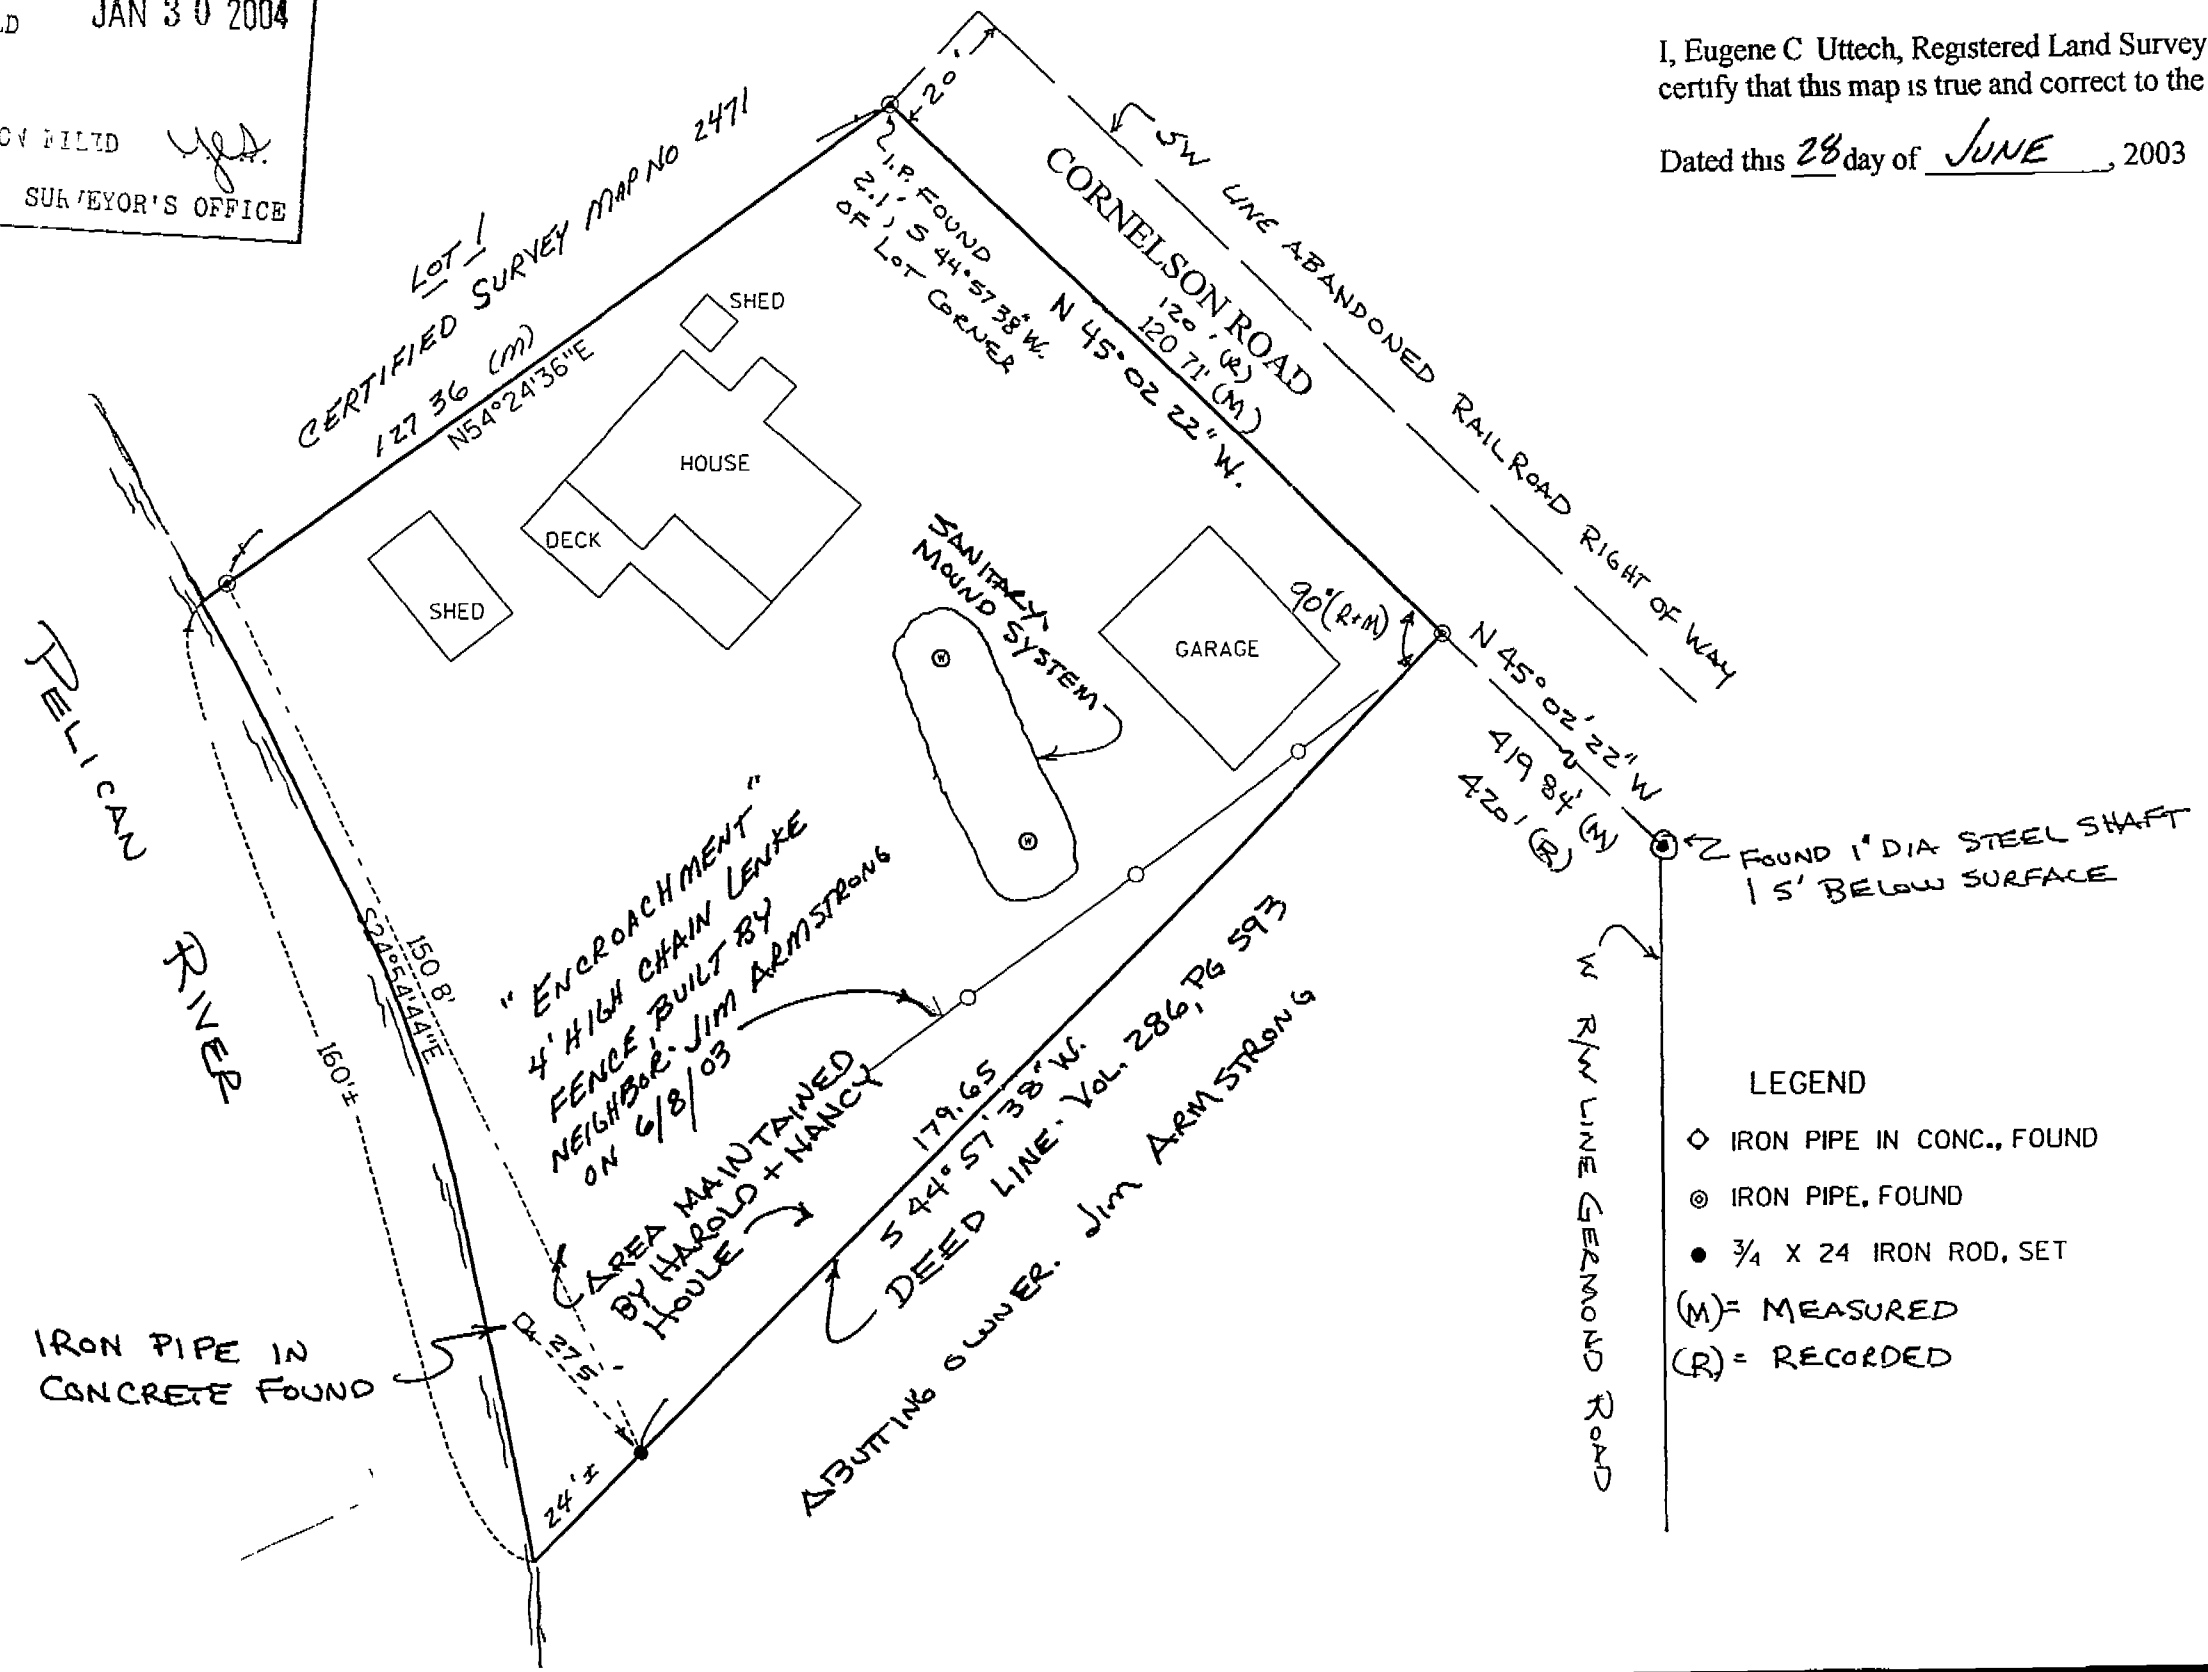 JAN 30 2004
FILED yes.
SURVEYOR'S OFFICE
I, Eugene C Uttech, Registered Land Survey
certify that this map is true and correct to the
Dated this 28 day of JUNE, 2003
LOT 1
CERTIFIED SURVEY MAP NO 2471
127 36 (M)
N54°24'36"E
20'
I.P. FOUND
2.1', S 44°57'38" W.
OF LOT CORNER
SW LINE ABANDONED RAILROAD RIGHT OF WAY
CORNELSON ROAD
120' (R)
120 71' (M)
N 45° 02 22" W.
SHED
HOUSE
DECK
SHED
SANITARY
MOUND SYSTEM
W
W
GARAGE
90° (R+M)
N 45° 02' 22" W
419 84' (M)
420' (R)
FOUND 1" DIA STEEL SHAFT
1 5' BELOW SURFACE
W R/W LINE GERMOND ROAD
PELICAN RIVER
160'±
150 8'
S24°54'44"E
"ENCROACHMENT"
4' HIGH CHAIN LENKE
FENCE, BUILT BY
NEIGHBOR. JIM ARMSTRONG
ON 6/8/03
AREA MAINTAINED
BY HAROLD + NANCY
HOULE
179.65
S 44° 57' 38" W.
DEED LINE. VOL. 286, PG 593
ABUTTING OWNER. JIM ARMSTRONG
IRON PIPE IN
CONCRETE FOUND
275'
24'±
LEGEND
IRON PIPE IN CONC., FOUND
IRON PIPE, FOUND
3/4 X 24 IRON ROD, SET
(M)= MEASURED
(R)= RECORDED